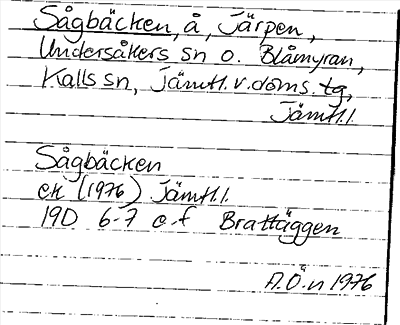 Sågbäcken, å, Järpen,
Undersåkers sn o. Blåmyran,
Kalls sn, Jämtl. v. doms. tg,
Jämtl.l.
Sågbäcken
ek (1976) Jämtl.l.
19D 6-7 e-f Brattäggen
A.Ö-n 1976